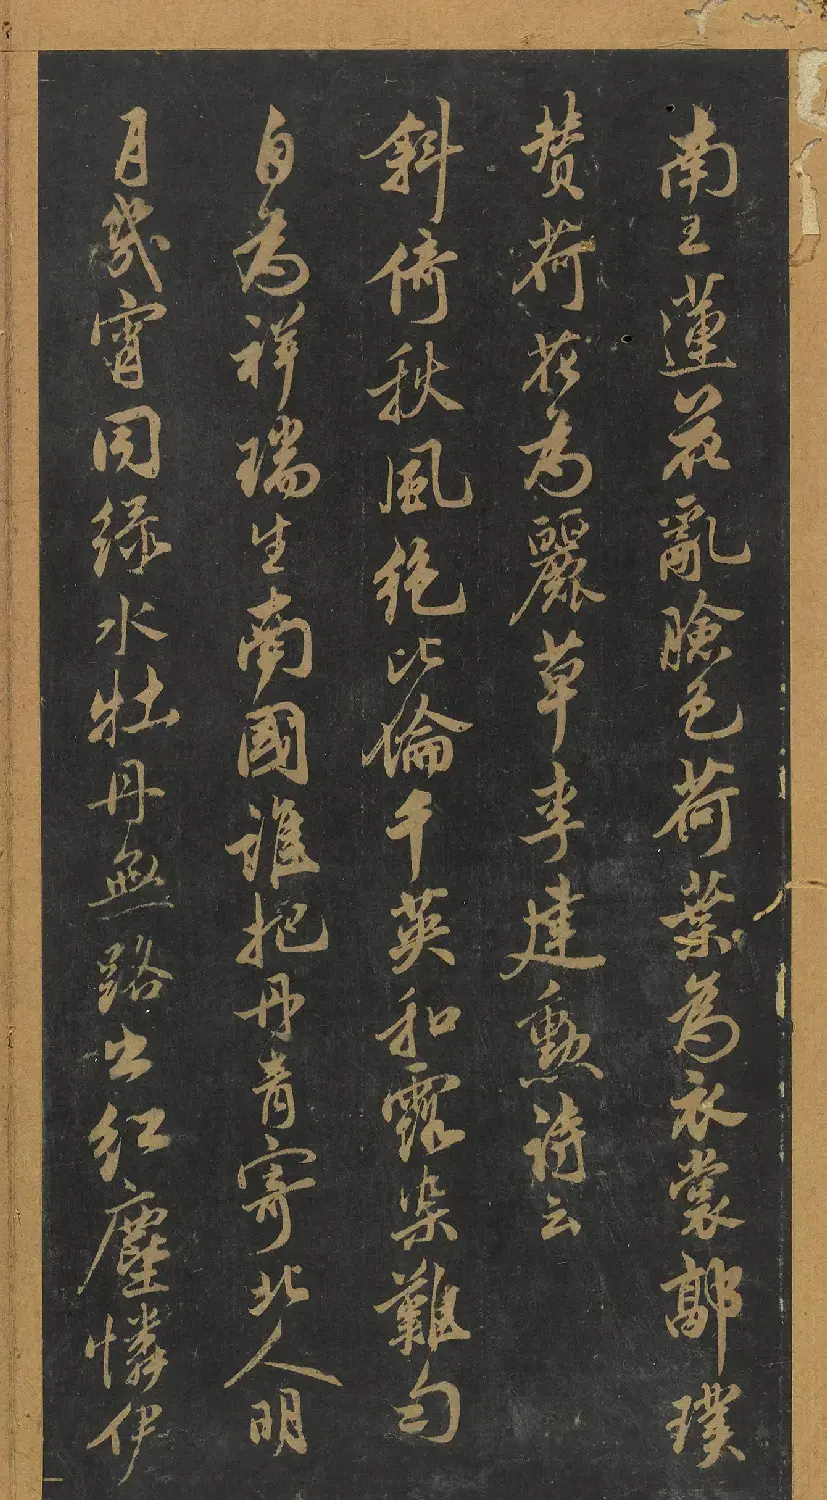 南王蓮花亂臉色荷葉為衣裳郭璞
贊荷花為麗草李建勳詩云
斜倚秋風絶比倫千英和露染難勻
自為祥瑞生南國誰把丹青寄北人明
月幾宵同緑水牡丹無路出紅塵憐伊